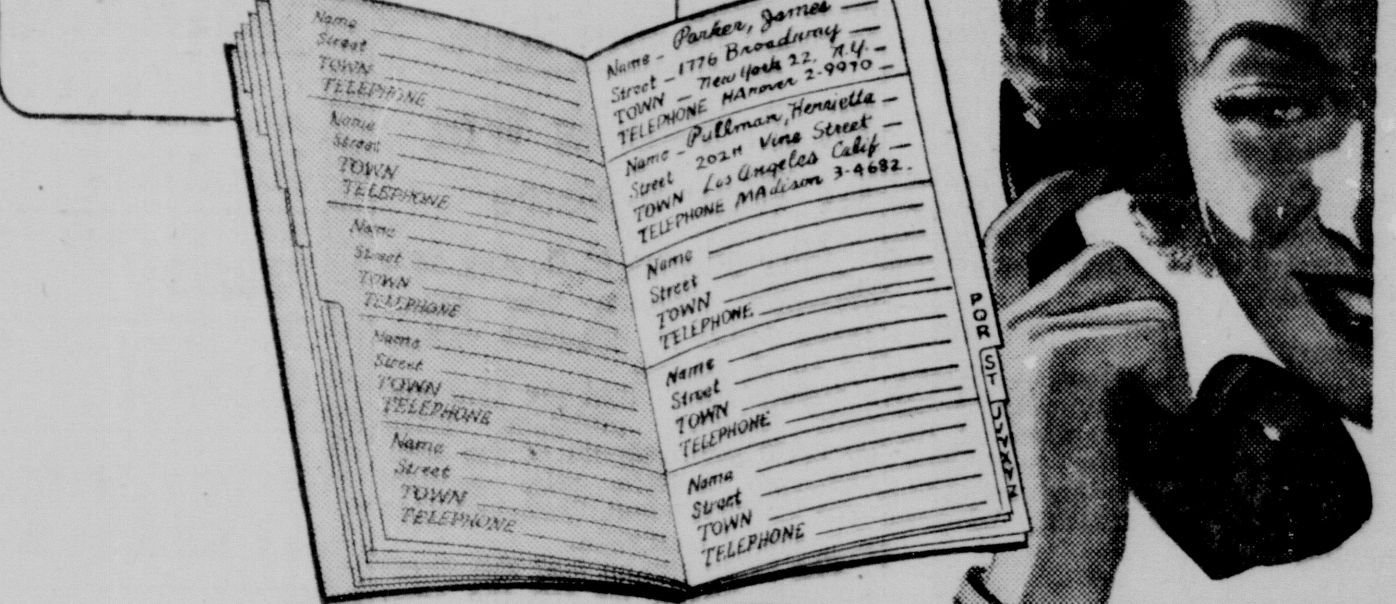 Name
Street
TOWN
TELEPHONE
Name
Street
TOWN
TELEPHONE
Name
Street
TOWN
TELEPHONE
Name
Street
TOWN
TELEPHONE
Name
Street
TOWN
TELEPHONE
Name - Parker, James
Street - 1776 Broadway
TOWN - New York 22, N.Y.
TELEPHONE HAnover 2-9970
Name - Pullman, Henrietta
Street 202 Vine Street
TOWN Los Angeles Calif
TELEPHONE MAdison 3-4682.
Name
Street
TOWN
TELEPHONE
Name
Street
TOWN
TELEPHONE
Name
Street
TOWN
TELEPHONE
PQR
ST